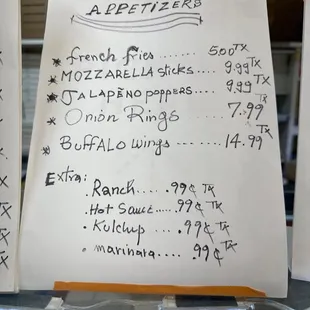 APPETIZERS
* french fries ...... 5.00 TX
* MOZZARELLA sticks .... 9.99 TX
* JALAPEÑO poppers .... 9.99 TX
* Onion Rings 7.99 TX
* BuffALO wings --- 14.99 TX
Extra:
. Ranch.... .99¢ TX
. Hot Sauce .... .99¢ TX
. Kutchup .... .99¢ TX
. marinara .... .99¢ TX